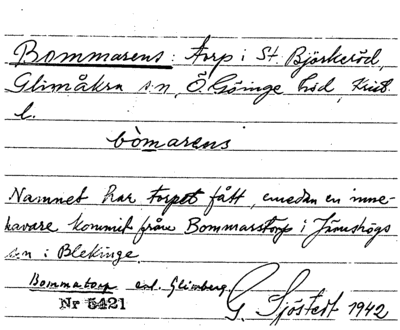 Bommarens: torp i St. Björkeröd,
Glimåkra s:n, Ö. Göinge hd, Krist.
l.
bòmarens
Namnet har torpet fått, emedan en inne-
havare kommit från Bommarstorp i Jämshögs
s:n i Blekinge.
Bommatorp enl. Glimberg.
Nr 5421
G. Sjöstedt 1942